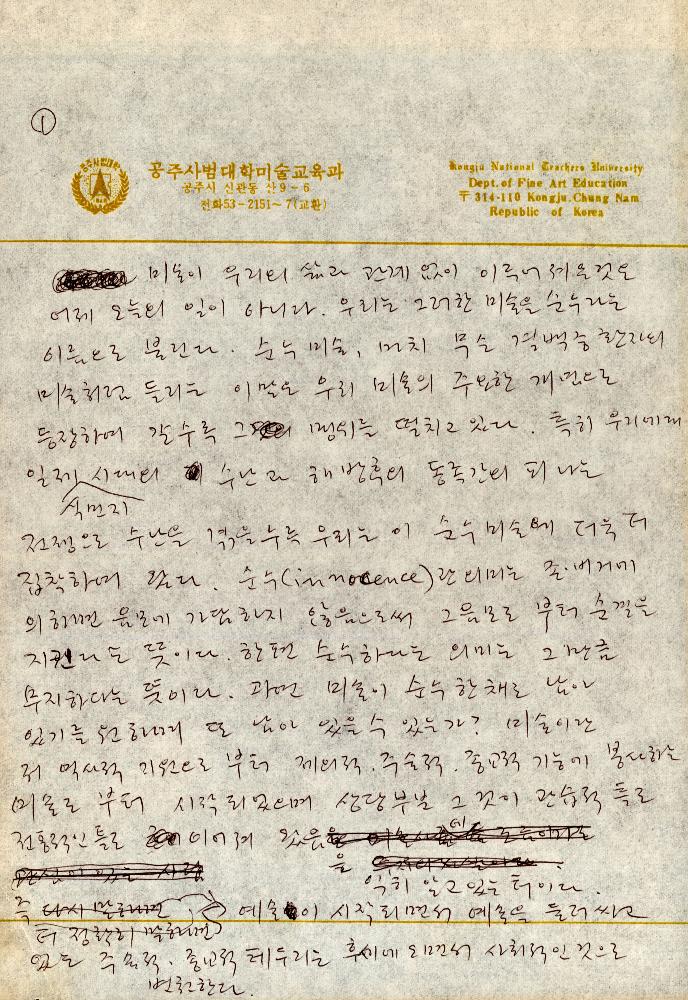 ①
공주사범대학미술교육과
공주시 신관동 산9-6
전화53-2151~7(교환)
Kongju National Teachers University
Dept. of Fine Art Education
〒314-110 Kongju. Chung Nam
Republic of Korea
미술이 우리의 삶과 관계 없이 이루어져온것은
어제 오늘의 일이 아니다. 우리는 그러한 미술을 순수라는
이름으로 불린다. 순수 미술, 마치 무슨 결백증 환자의
미술처럼 들리는 이말은 우리 미술의 주요한 개념으로
등장하여 갈수록 그 맹위를 떨치고 있다. 특히 우리에게
일제 시대의 수난과 해방후의 동족간의 피 나는
식민지
전쟁으로 수난을 겪을수록 우리는 이 순수미술에 더욱 더
집착하여 왔다. 순수(innocence)란 의미는 존·버거에
의하면 음모에 가담하지 않음으로써 그음모로 부터 순결을
지킨다는 뜻이다. 한편 순수하다는 의미는 그만큼
무지하다는 뜻이다. 과연 미술이 순수한채로 남아
있기를 원하며 또 남아 있을수 있는가? 미술이란
저 역사적 기원으로 부터 제의적, 주술적, 종교적 기능에 봉사하는
미술로 부터 시작되었으며 상당부분 그것이 관습적 틀로
전통적인 틀로 이어져 왔음
을 익히 알고 있는 터이다.
즉 예술이 시작되면서 예술을 둘러싸고
더 정확히 말하면
있는 주술적, 종교적 테두리는 후세에 오면서 사회적인 것으로
변천한다.